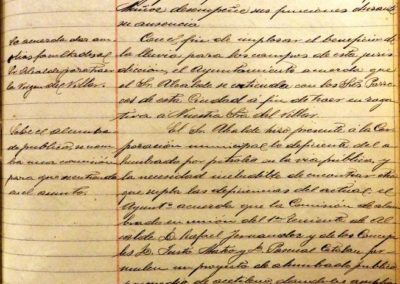 Muñoz desempeñe sus funciones durante
su ausencia.
Se acuerda dar am-
plias facultades al
Sr. Alcalde para traer
la Virgen del Villar.
Con el fin de implorar el beneficio de
la lluvia para los campos de esta juris
dicción, el Ayuntamiento acuerda que
el Sr. Alcalde se entienda con los Sres Parro
cos de esta Ciudad a fin de traer en roga
tiva a Nuestra Sra del Villar.
Sobre el alumbra
do público se nom
bra una comisión
para que entienda
en el asunto.
El Sr. Alcalde hizo presente a la Cor
poración municipal lo deficiente del a
lumbrado por petróleo en la vía pública, y
la necesidad ineludible de encontrar otro
que supla las deficiencias del actual; el
Ayuntº acuerda que la Comisión de alum
brado en unión del 1er teniente de Al
calde D. Rafael Fernandez y de los Conceja
les D. Justo y D. Pascual Catalan for
mulen un proyecto de alumbrado público
por medio de acetileno, dandoles amplias